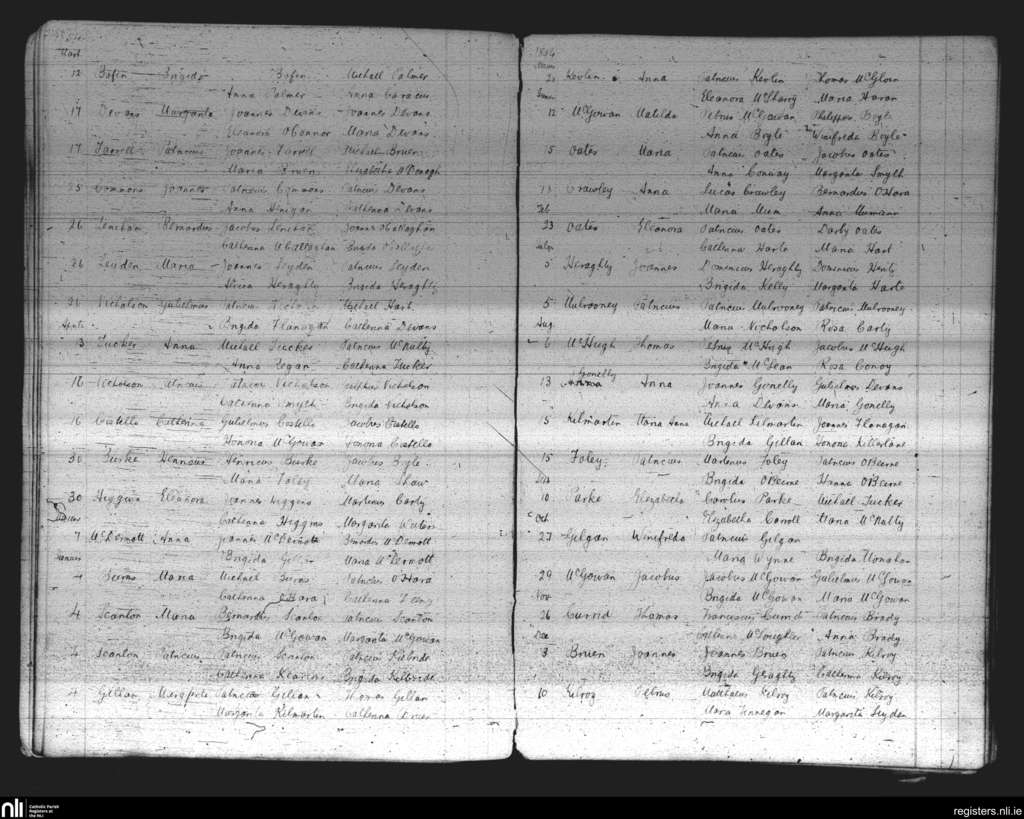 Mart
12 Bofin Brigida Bofin Michael Palmer
Anna Palmer Anna
17 Devans Margarita Joannes Devans Joannes Devans
Eleanora O'Connor Maria Devans
17 Farrell Patricius Joannes Farrell Michael Bruen
Maria Bruen Elizabetha
25 Commons Joannes Patricius Commons Patricius Devans
Anna Hinigan Catherina Devans
26 Lenihan Bernardus Jacobus Lenihan Joannes O'Callaghan
Catherina O'Callaghan Brigida
26 Leyden Maria Joannes Leyden Patricius Leyden
Alicia Heraghty Brigida Heraghty
31 Nicholson Gulielmus Patricius Michael Hart
Aprilis Brigida Flanagan Catherina Devans
13 Tucker Anna Michael Tucker Patricius McNalty
Anna Regan Catherina Tucker
16 Nicholson Patricius Patricius Nicholson Nicholson
Catherina Smyth Brigida Nicholson
16 Costello Catherina Gulielmus Costello Jacobus Costello
Honoria McGowan Honoria Costello
30 Burke Henricus Henricus Burke Jacobus Boyle
Maria Foley Maria Shaw
30 Higgins Eleanora Joannes Higgins Martinus Carty
Catherina Higgins Margarita Waters
7 McDermott Anna Joannes McDermott McDermott
Brigida Maria McDermott
Januarii
4 Burns Maria Michael Burns Patricius O'Hara
Catherina O'Hara Catherina
4 Scanlon Maria Bernardus Scanlon Patricius Scanlon
Brigida McGowan Margarita McGowan
4 Scanlon Patricius Patricius Scanlon Patricius Kilbride
Catherina Brigida Kilbride
4 Gillan Margarita Patricius Gillan Thomas Gillan
Margarita Kilmartin Catherina
1886
Kevlin Anna Patricius Kevlin Thomas McGloin
Eleanora McSharry Maria Haran
12 McGowan Matilda Petrus McGowan Philippus Boyle
Anna Boyle Winifreda Boyle
5 Oates Maria Patricius Oates Jacobus Oates
Anna Conway Margarita Smyth
Crawley Anna Lucas Crawley Bernardus O'Hara
Feb Maria Anna
23 Oates Eleanora Patricius Oates Darby Oates
Catherina Harte Maria Hart
5 Heraghty Joannes Domenicus Heraghty Domenicus
Brigida Kelly Margarita Harte
5 Mulrooney Patricius Patricius Mulrooney Patricius Mulrooney
Aug Maria Nicholson Rosa Carty
6 McHugh Thomas McHugh Jacobus McHugh
Brigida McLean Rosa Conoy
Gonelly
13 Anna Anna Joannes Gonelly Gulielmus Devans
Anna Devans Maria Gonelly
15 Kilmartin Maria Anna Michael Kilmartin Joannes Flanagan
Brigida Gillan
15 Foley Patricius Martinus Foley Patricius O'Beirne
Brigida O'Beirne Hanna O'Beirne
10 Parke Elizabetha Carolus Parke Michael Tucker
Oct Elizabetha Carroll Maria McNalty
27 Gilgan Winifreda Patricius Gilgan
Maria Wynne Brigida Monahan
29 McGowan Jacobus Jacobus McGowan Gulielmus McGowan
Nov Brigida McGowan Maria McGowan
26 Currid Thomas Franciscus Currid Patricius Brady
Dec Catherina McLoughlin Anna Brady
3 Bruen Joannes Joannes Bruen Patricius Kilroy
Brigida Geaghty Catherina Kilroy
10 Kilroy Petrus Matthaeus Kilroy Patricius Kilroy
Maria Finnegan Margarita Leyden
nli Catholic Parish
Registers at
the NLI
registers.nli.ie